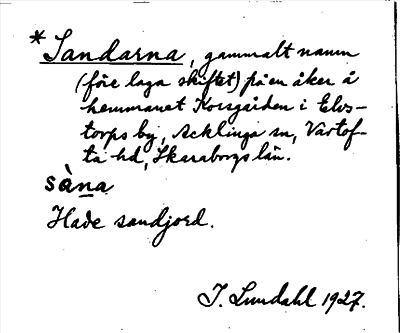 *Sandarna, gammalt namn
(före laga skiftet) på en åker å
hemmanet Korsgården i Elvs-
torps by, Acklinga sn, Vartof-
ta hd, Skaraborgs län.
sàna
Hade sandjord.
I. Lundahl 1927.